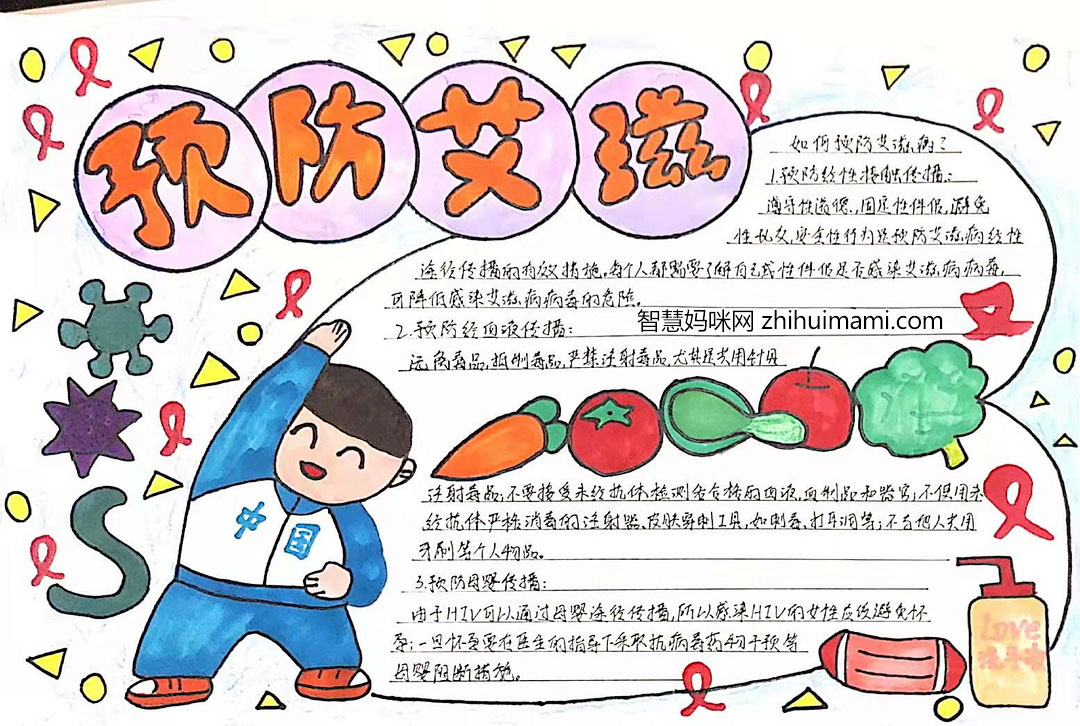 预防艾滋
如何预防艾滋病?
1.预防经性接触传播:
遵守性道德、固定性伴侣,避免
性乱交,安全性行为是预防艾滋病经性
途径传播的有效措施。每个人都需要了解自己或性伴侣是否感染艾滋病病毒,
可降低感染艾滋病病毒的危险。
智慧妈咪网 zhihuimami.com
2.预防经血液传播:
远离毒品,抵制毒品,严禁注射毒品,尤其是共用针具
注射毒品;不要接受未经抗体检测不合格的血液,血制品和器官;不使用未
经抗体严格消毒的注射器、皮肤穿刺工具,如刺毒、打耳洞等;不与他人共用
牙刷等个人物品。
中国
3.预防母婴传播:
由于HIV可以通过母婴途径传播,所以感染HIV的女性应该避免怀
孕;一旦怀孕要在医生的指导下采取抗病毒药物干预等
母婴阻断措施。
Love
洗手液